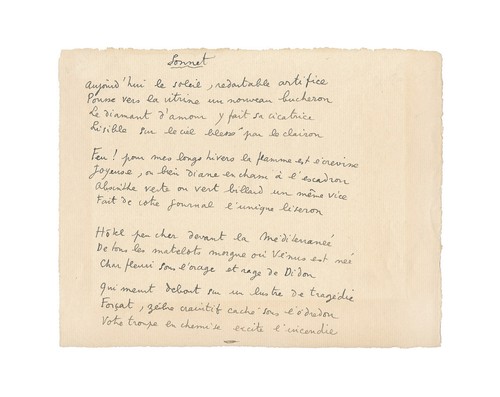 Sonnet
Aujourd'hui le soleil, redoutable artifice
Pousse vers la vitrine un nouveau bucheron
Le diamant d'amour y fait sa cicatrice
Lisible sur le ciel blessé par le clairon
Feu! pour mes longs hivers la flamme est l'écrevisse
Joyeuse, ou bien Diane en champ à l'escadron
Absinthe verte ou vert billard un même vice
Fait de votre journal l'unique liseron
Hôtel peu cher devant la Méditerranée
De tous les matelots morgue où Vénus est née
Char fleuri sous l'orage et rage de Didon
Qui meurt debout sur un lustre de tragédie
Forçat, zèbre craintif caché sous l'édredon
Votre troupe en chemise excite l'incendie